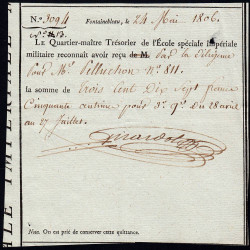 N.° 3094 Fontainebleau, le 24 Mai 1806.
N.° 13.
LE Quartier-maître Trésorier de l'École spéciale Impériale
militaire reconnaît avoir reçu de M. par la diligence
Pour Mr. Pelluchon N.° 811.
la somme de trois Cent Dix Sept francs
Cinquante centimes pour 3.e q.er du 28 avril
au 27 Juillet.
Girardot
Nota. On est prié de conserver cette quittance.
LE IMPÉRIALE